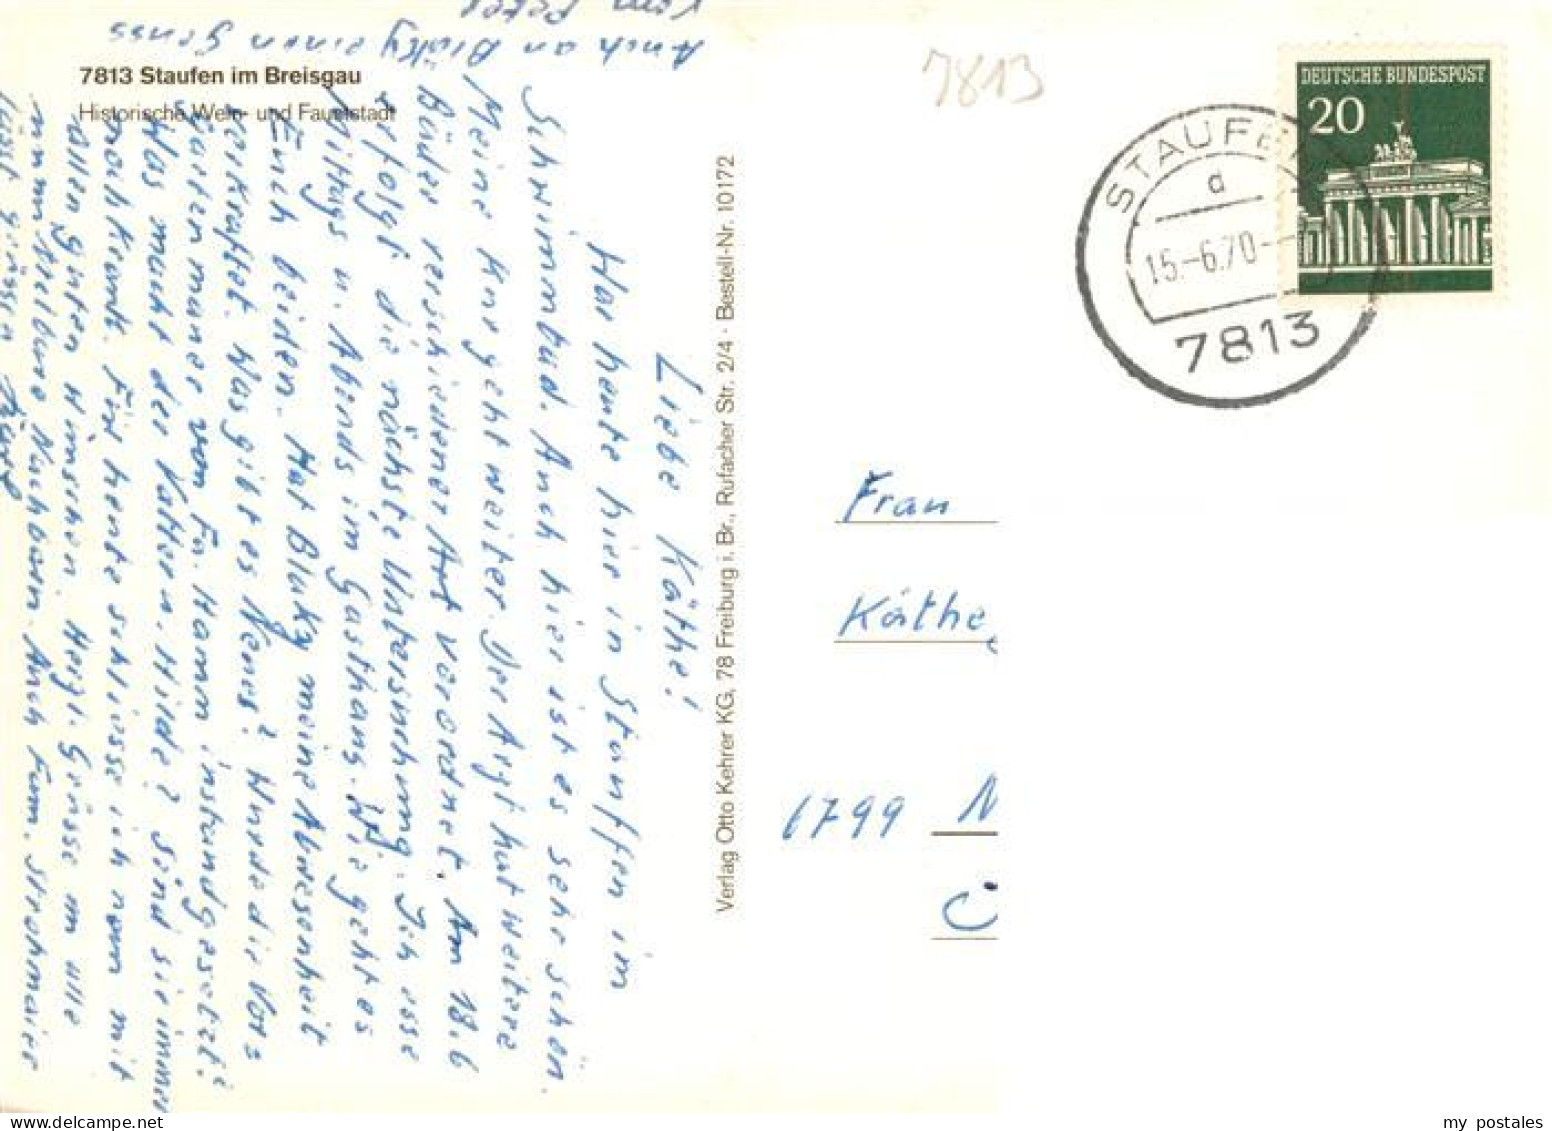 7813 Staufen im Breisgau
Historische Wein- und Fauststadt
Liebe Käthe!
War heute hier in Stauffen im
Schwimmbad. Auch hier ist es sehr schön.
Meine Kur geht weiter. Der Arzt hat weitere
Bäder verschiedener Art verordnet. Am 18.6
erfolgt die nächste Untersuchung. Ich esse
Mittags u. Abends im Gasthaus. Wie geht es
Euch beiden. Hat Blaky meine Abwesenheit
verkraftet. Was gibt es Neues? Wurde die Vor-
gartenmauer von Fa. Hamm instandgesetzt?
Was macht der Vatter u. Hilde? Sind sie immer
noch krank. Für heute schliesse ich nun mit
allen guten wünschen. Herzl. Grüsse an alle
unmittelbare Nachbarn. Auch Fam. Strohmaier
lässt grüssen
Auch an Blaky einen Gruss
vom Peter
Verlag Otto Kehrer KG, 78 Freiburg i. Br., Rufacher Str. 2/4 · Bestell-Nr. 10172
7813
DEUTSCHE BUNDESPOST
20
STAUFEN
a
15.-6.70.-
7813
Frau
Käthe
6799 N
my postales